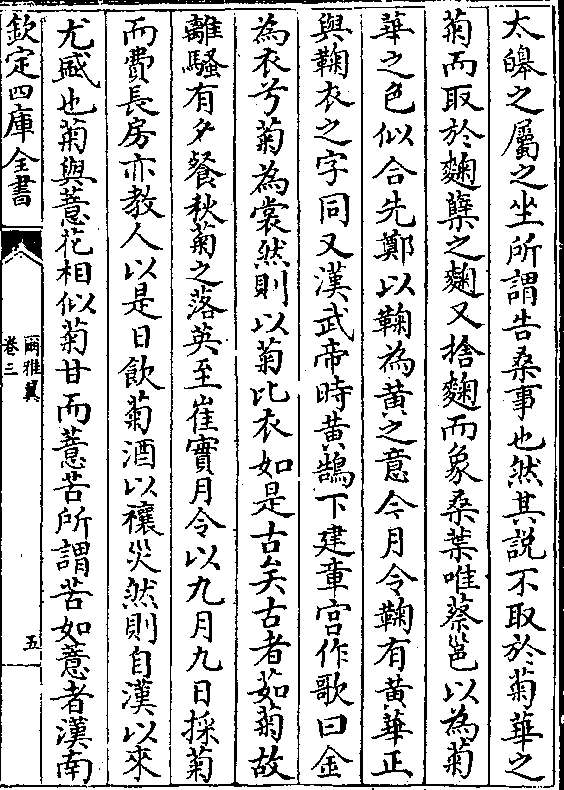 太皥之屬之坐所謂告桑事也然其說不取於菊華之
菊而取於麴糵之麴又捨麴而象桑葉唯蔡邕以為菊
華之色似合先鄭以鞠為黃之意今月令鞠有黃華正
與鞠衣之字同又漢武帝時黃鵠下建章宫作歌曰金
為衣兮菊為裳然則以菊比衣如是古矣古者茹菊故
離騷有夕餐秋菊之落英至崔寔月令以九月九日採菊
而費長房亦教人以是日飲菊酒以禳災然則自漢以來
尤盛也菊與薏花相似菊甘而薏苦所謂苦如薏者漢南
欽定四庫全書
爾雅翼
卷三
五